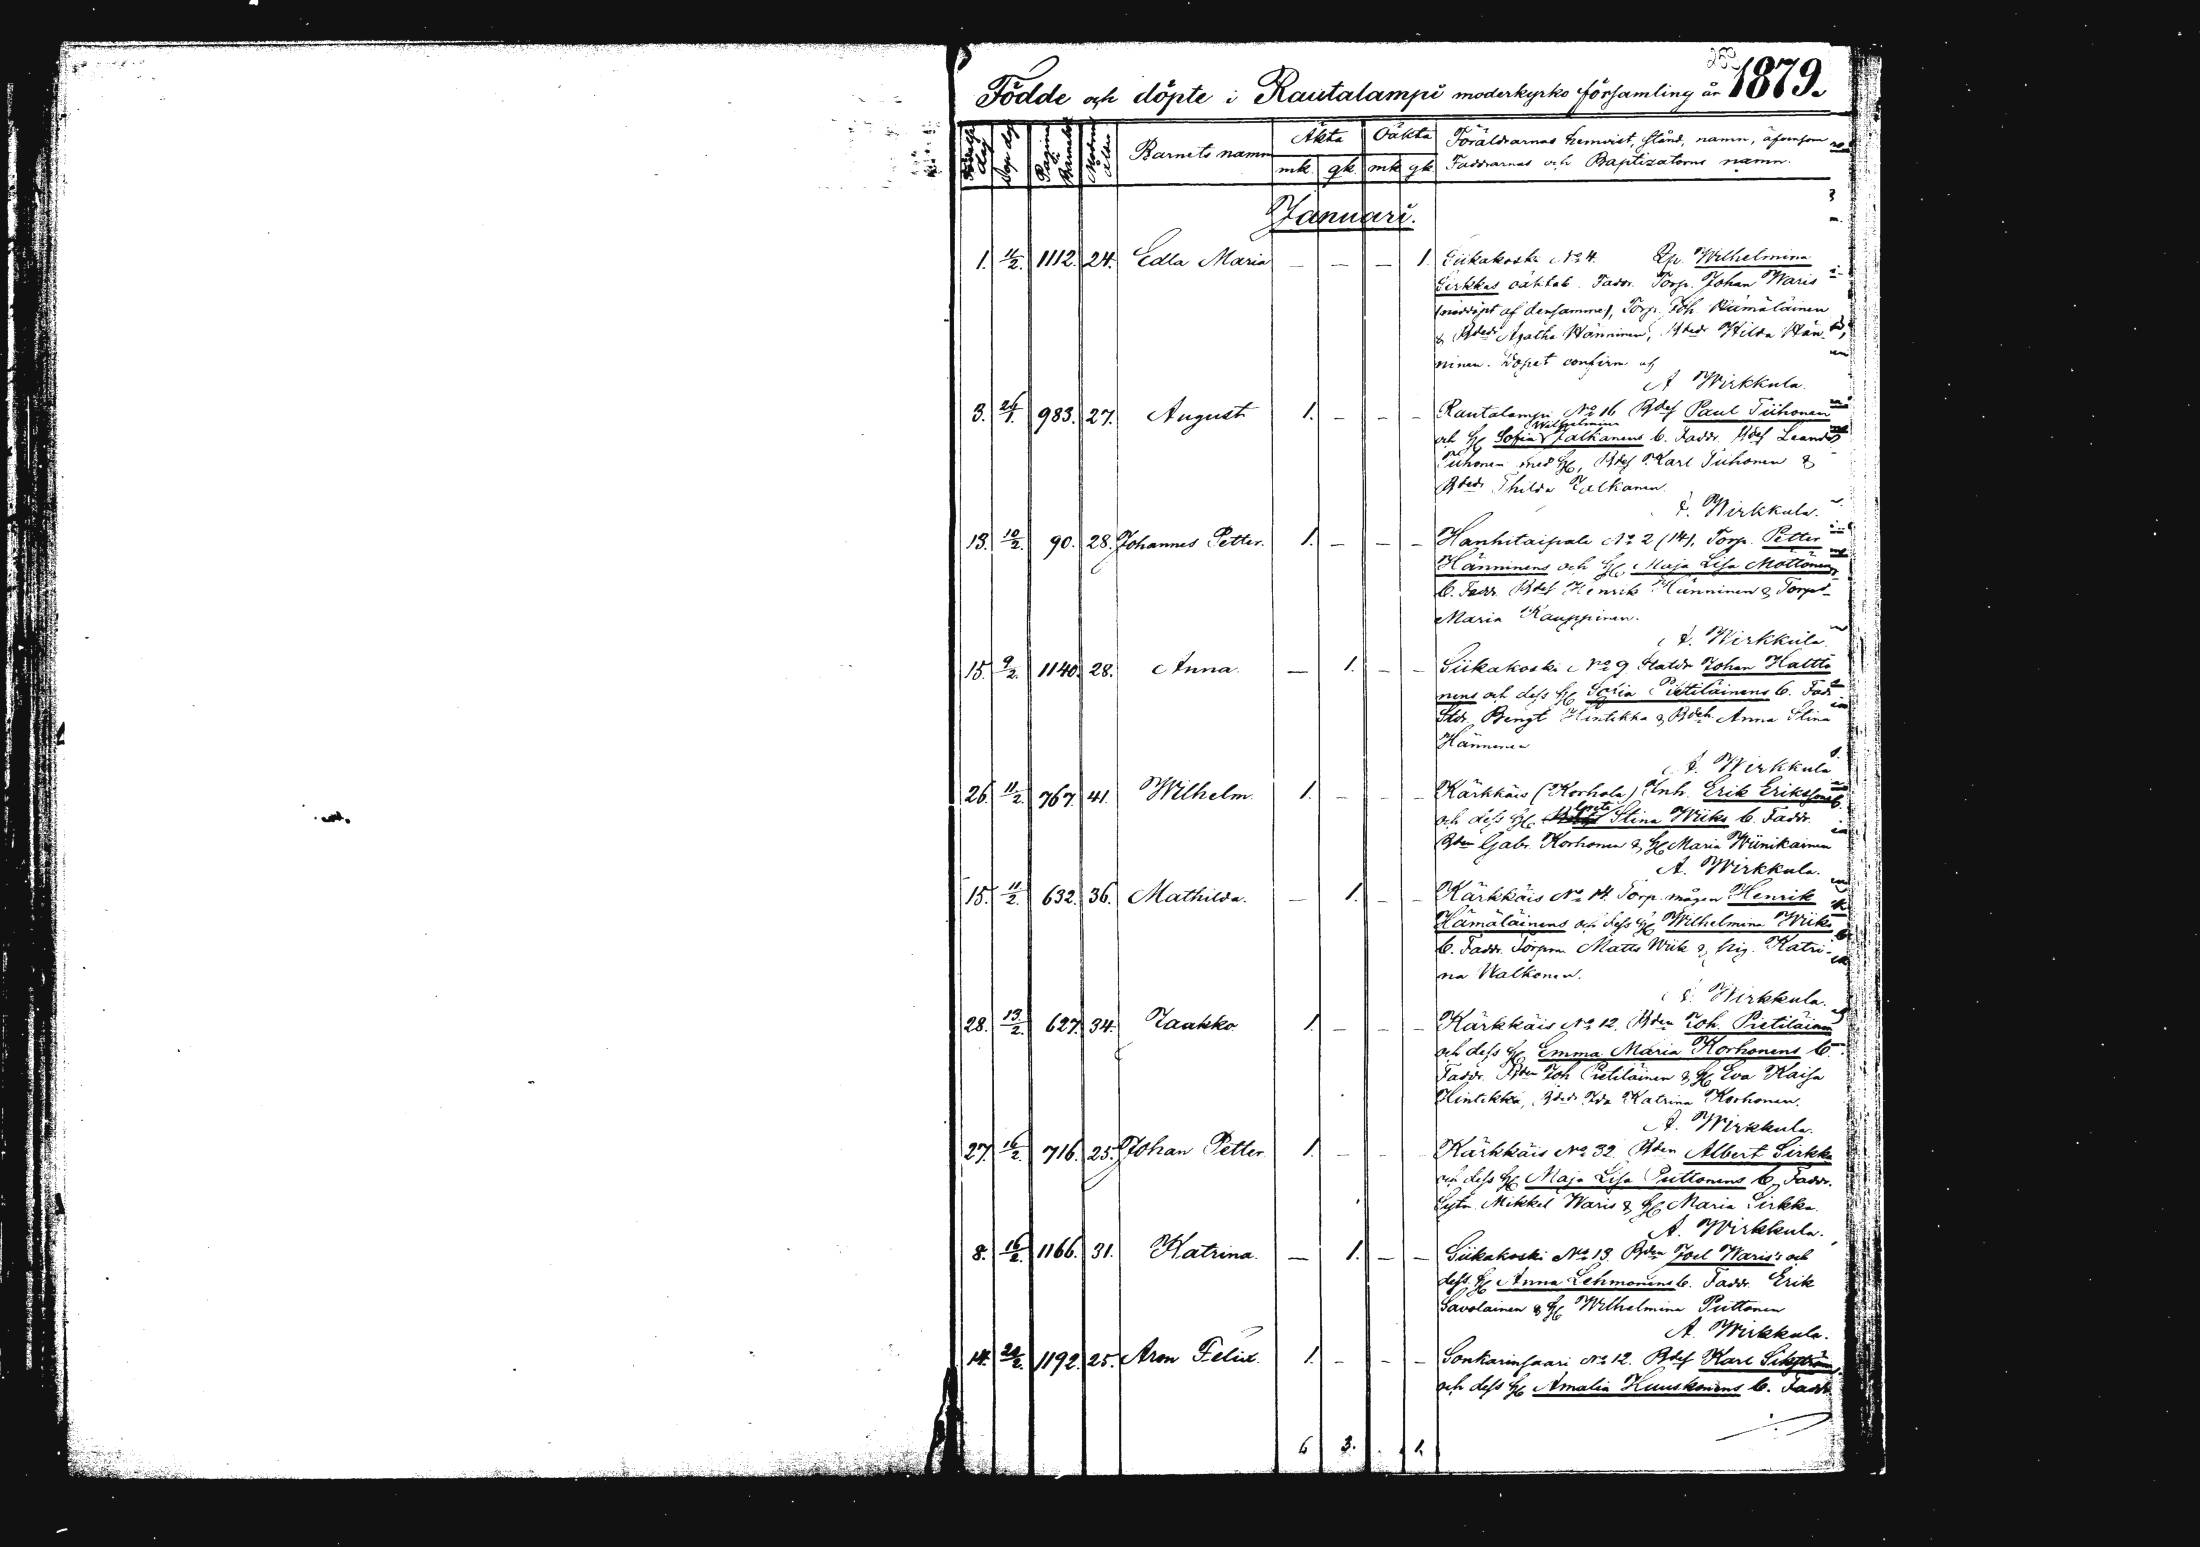 1879.
Födde och döpte i Rautalampi moderkyrko församling år
Födelse dag Dop dag Pagina i Barnabok Modrens ålder Barnets namn Äkta Oäkta Föräldrarnas hemvist, stånd, namn, äfvensom
mk. gk. mk gk Faddrarnas och Baptizatorns namn.
Januari.
1. 11/2. 1112. 24. Edla Maria — — — 1. Siikakoski No 4. Wilhelmina
Sirkkas oäkta b. Faddr. Torp. Johan Waris
(nöddöpt af densamme), Torp. Joh. Hämäläinen
& Agatha Hänninen, Hilda Hän-
ninen. Dopet confirm af
A Wirkkula.
3. 26/1. 983. 27. August 1. — — — Rautalampi No 16 Bdes Paul Tiihonen
Wilhelmina
och H Sofia Jalkanens b. Faddr. Bdes Leander
Tiihonen med H, Bdes Karl Tiihonen &
Thilda Jalkanen.
A. Wirkkula.
13. 10/2. 90. 28. Johannes Petter. 1. — — — Hanhitaipale No 2 (14), Torp. Petter
Hänninens och H Maja Lisa Möttönens
b. Faddr. Bdes Henrik Hänninen & Torp
Maria Kauppinen.
A. Wirkkula.
15. 9/2. 1140. 28. Anna. — 1. — — Siikakoski No 9 Johan Haltto
nens och dess H Sofia Pietiläinens b. Fadr
Bengt Hintikka & Anna Stina
Hänninen
A. Wirkkula
26. 11/2. 767. 41. Wilhelm. 1. — — — Kärkkäis (Korhola) Inh. Erik Erikssons b.
Greta
och dess H Stina Wiiks b. Faddr.
Bden Gabr. Korhonen & H Maria Wiinikainen
A. Wirkkula.
15. 11/2. 632. 36. Mathilda. — 1. — — Kärkkäis No 14. Torp. mågen Henrik
Hämäläinens och dess H Wilhelmina Wiiks
b. Faddr. Torpm. Matts Wiik & pig. Katri-
na Walkonen.
A. Wirkkula.
28. 13/2. 627. 34. Jaakko 1. — — — Kärkkäis No 12. Bden Joh. Pietiläinens
och dess H Emma Maria Korhonens b.
Faddr. Bden Joh Pietiläinen & H Eva Kaisa
Hintikka, Ida Katrina Korhonen.
A. Wirkkula.
27. 16/2. 716. 25. Johan Petter 1. — — — Kärkkäis No 32. Bden Albert Sirkka
och dess H Maja Lisa Puttonens b. Faddr.
Sytn. Mikkel Waris & H Maria Sirkka.
A. Wirkkula.
8. 16/2. 1166. 31. Katrina. — 1. — — Siikakoski No 13. Bden Joel Waris's och
dess H Anna Lehmonens b. Faddr. Erik
Savolainen & H Wilhelmina Puttonen
A. Wirkkula.
14. 1192. 25. Aron Felix. 1. — — — Sonkarinsaari No 12. Bdes Karl
och dess H Amalia Huuskonens b. Faddr.
6 3. . 1.